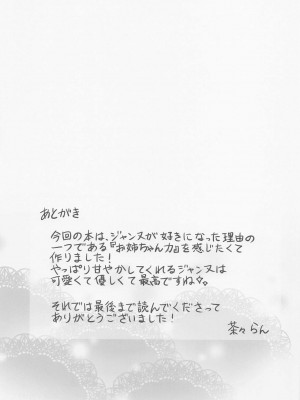 あとがき
今回の本は、ジャンヌが好きになった理由の
一つである『お姉ちゃん力』を感じたくて
作りました!
やっぱり甘やかしてくれるジャンヌは
可愛くて優しくて最高ですね☆。
それでは最後まで読んでくださって
ありがとうございました!
茶々らん